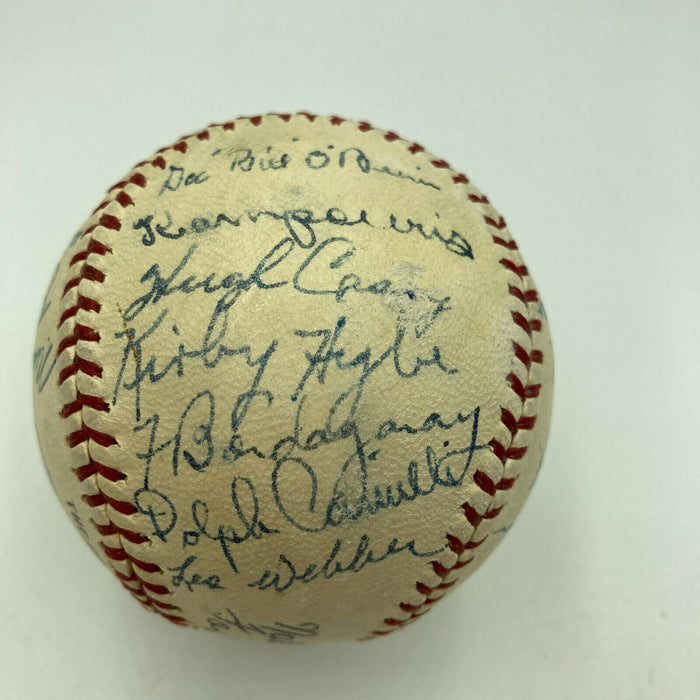 Doc "Bill" O'Brien
Kampouris
Hugh Casey
Kirby Higbe
F Bordagaray
Dolph Camilli
Les Webber